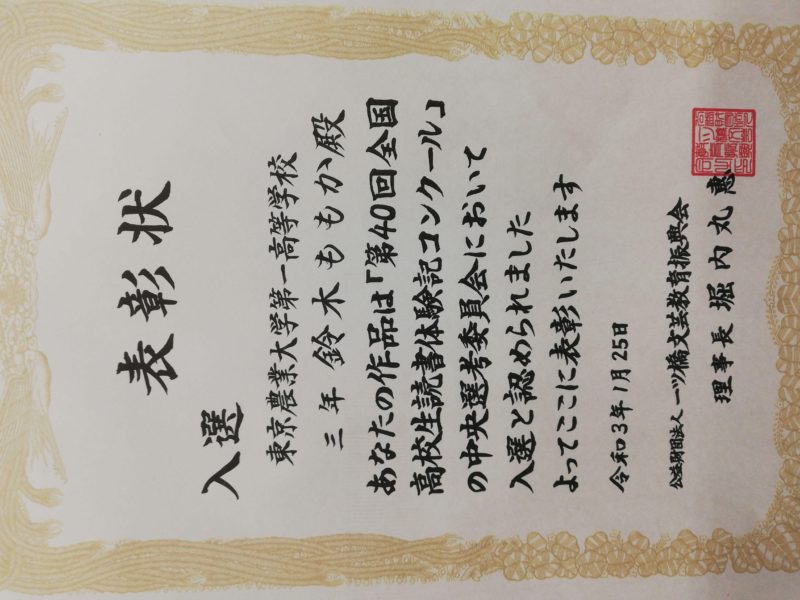 表彰状
入選
東京農業大学第一高等学校
三年 鈴木ももか殿
あなたの作品は「第40回全国
高校生読書体験記コンクール」
の中央選考委員会において
入選と認められました
よってここに表彰いたします
令和3年1月25日
公益財団法人一ツ橋文芸教育振興会
理事長 堀内丸惠